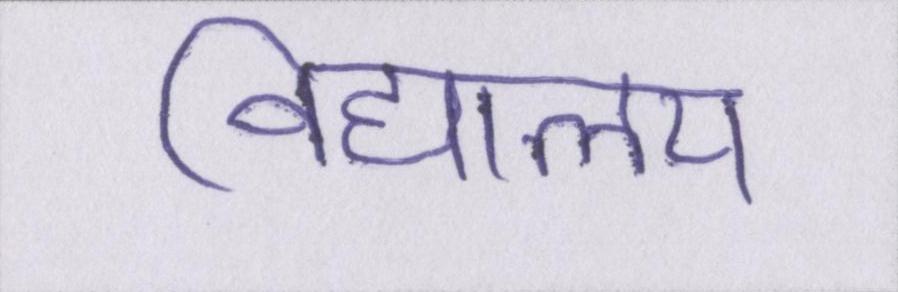 विद्यालय